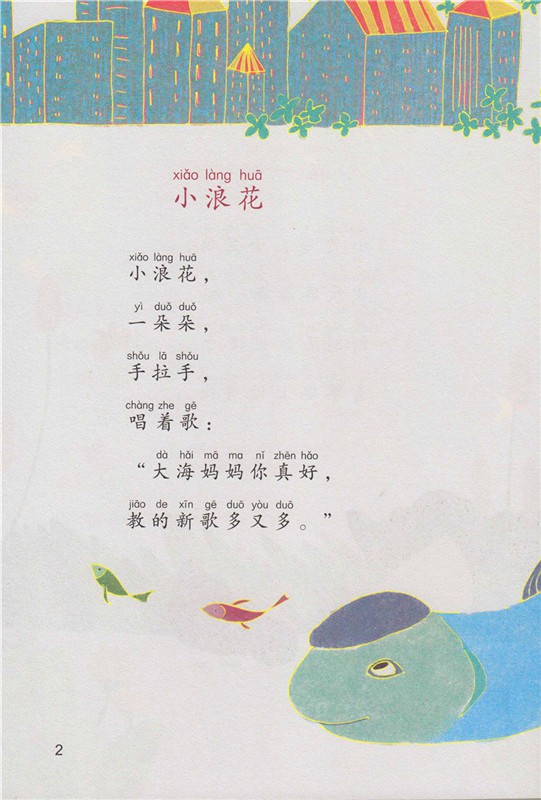 xiǎo làng huā
小浪花
xiǎo làng huā
小浪花，
yì duǒ duǒ
一朵朵，
shǒu lā shǒu
手拉手，
chàng zhe gē
唱着歌：
dà hǎi mā ma nǐ zhēn hǎo
“大海妈妈你真好，
jiāo de xīn gē duō yòu duō
教的新歌多又多。”
2